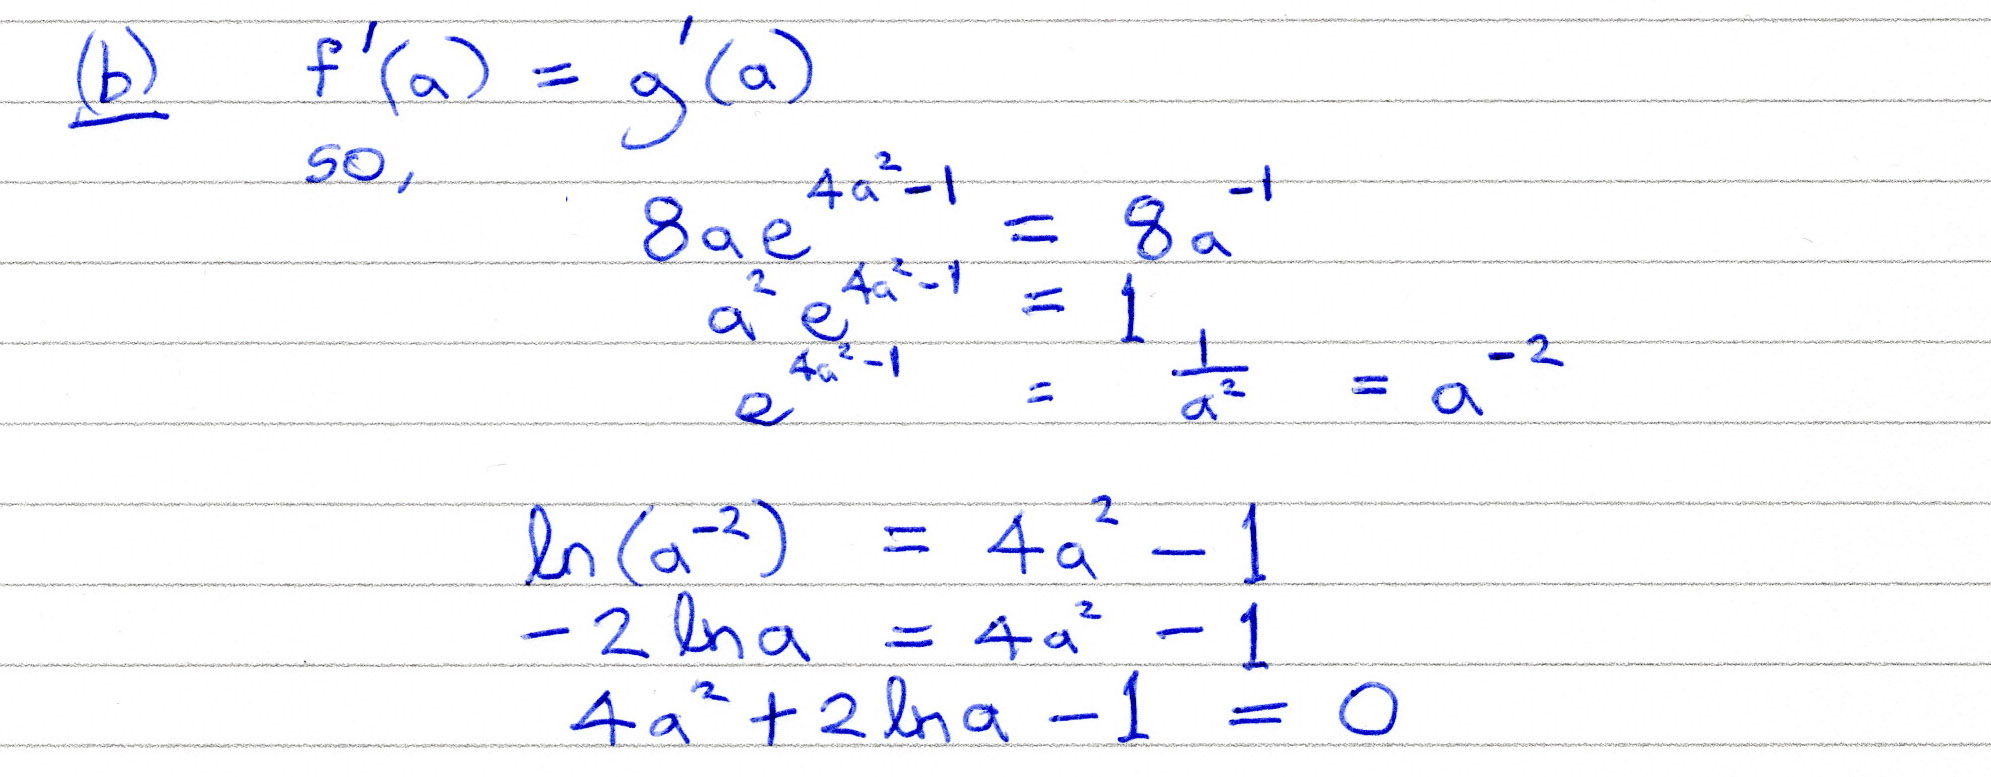 (b) f'(a) = g'(a)
so,
8ae^{4a²-1} = 8a^{-1}
a² e^{4a²-1} = 1
e^{4a²-1} = \frac{1}{a²} = a^{-2}
ln(a^{-2}) = 4a² - 1
-2 ln a = 4a² - 1
4a² + 2 ln a - 1 = 0